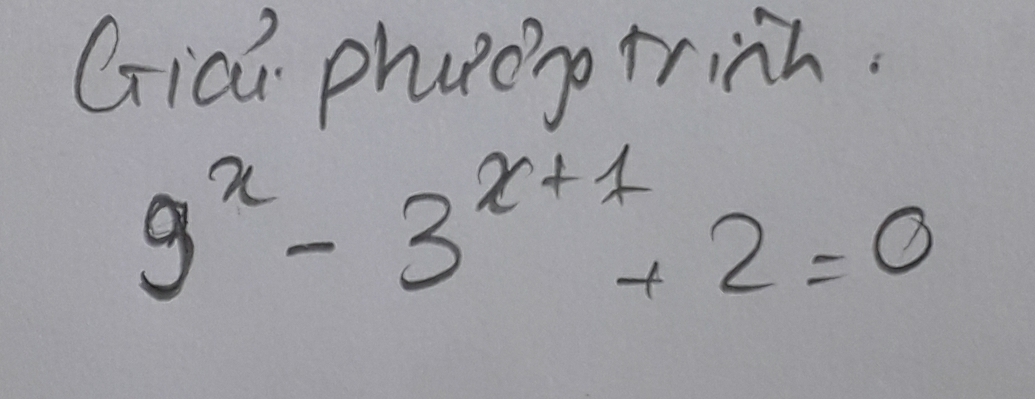 Giải phương trình.
9^x - 3^{x+1} + 2 = 0